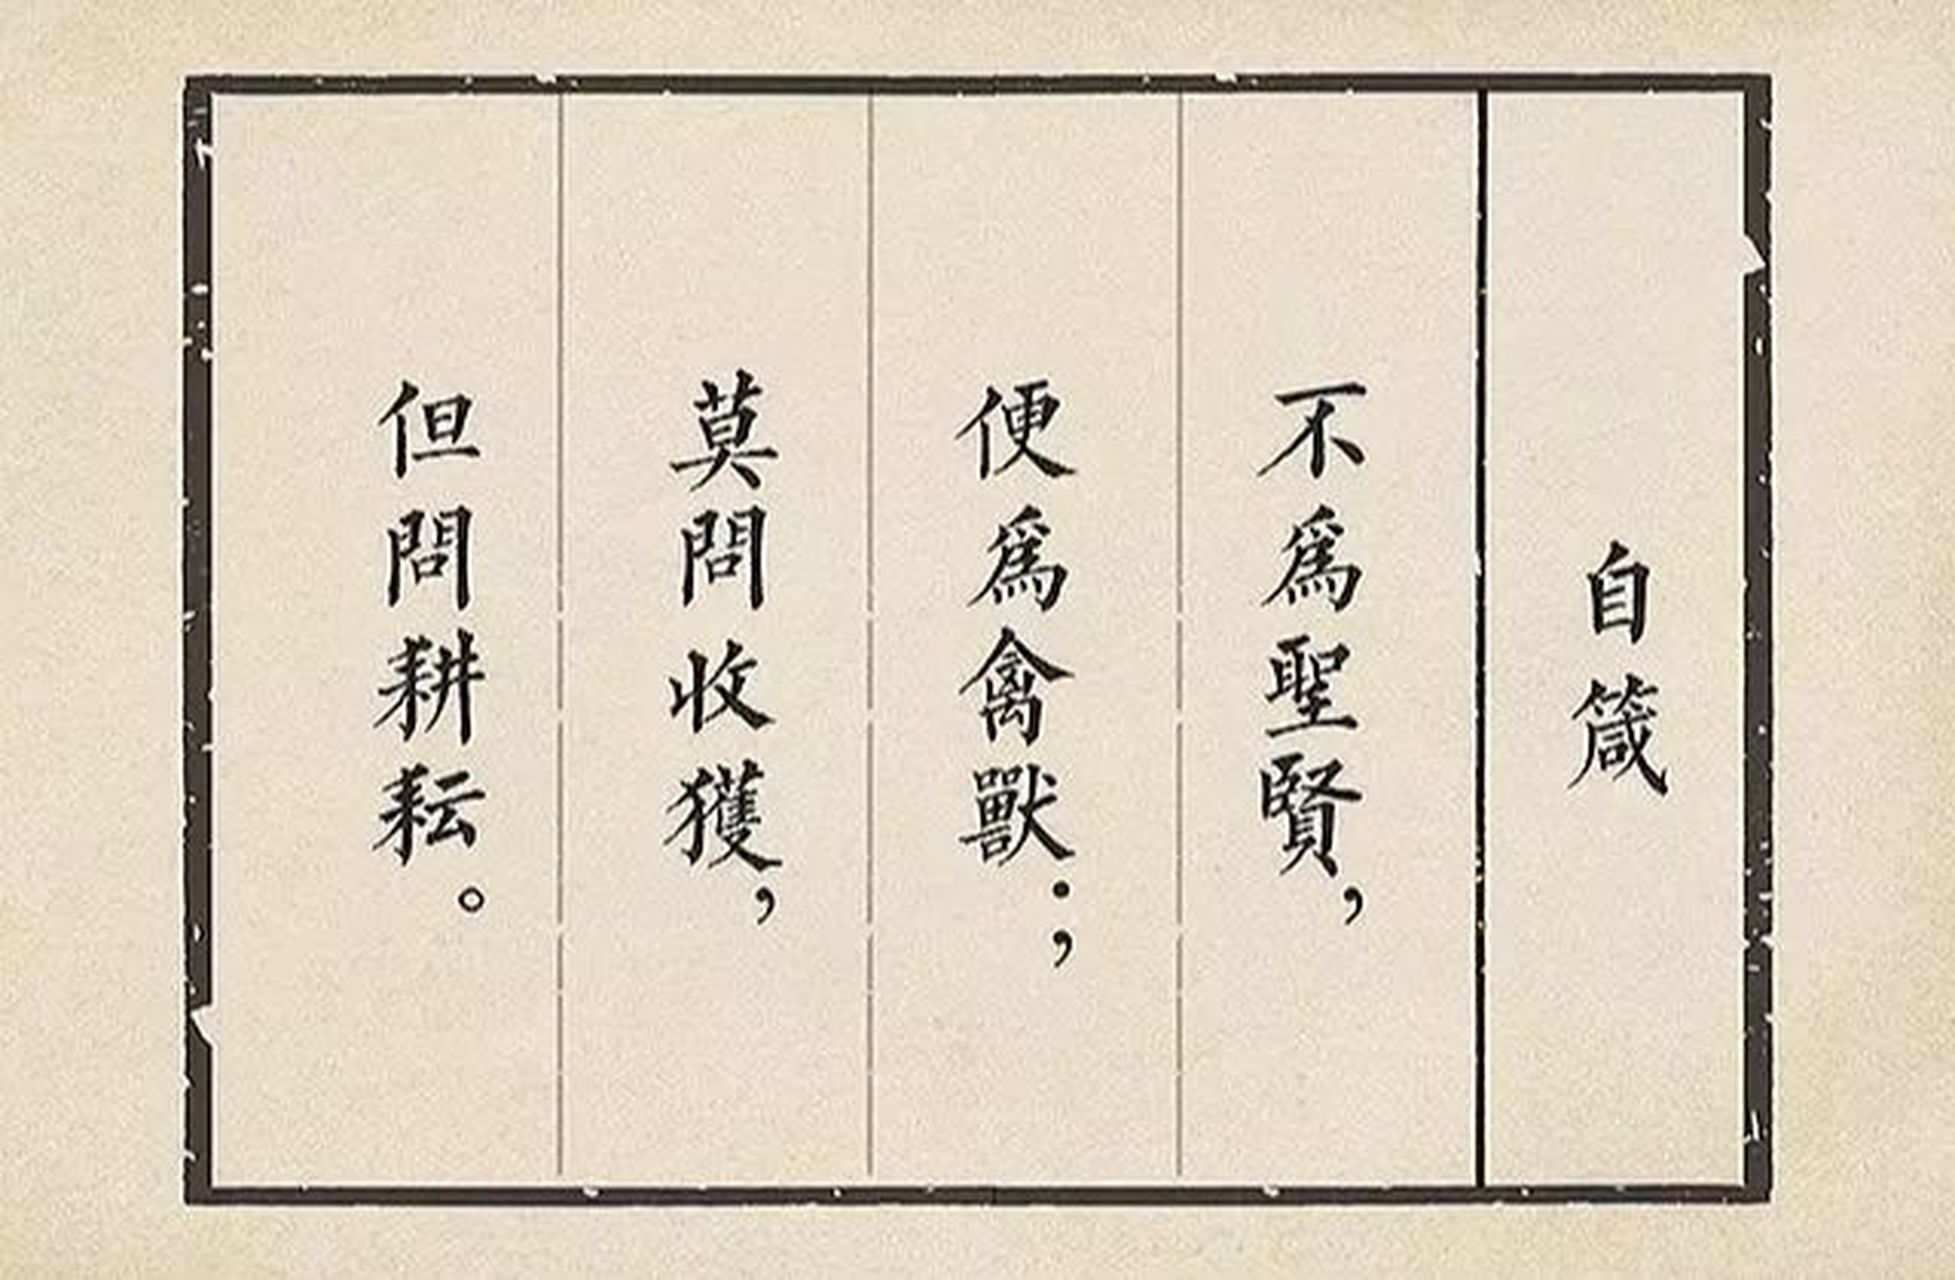 自箴
不爲聖賢，
便爲禽獸；
莫問收獲，
但問耕耘。